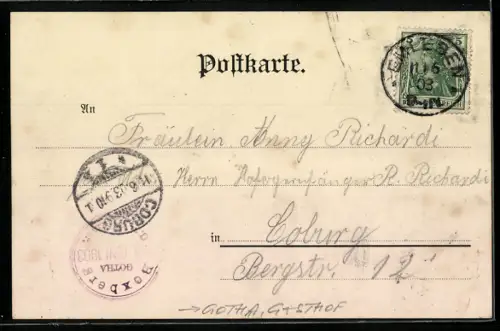 Postkarte.
EMLEBEN
11 6
03
An
Fräulein Anny Richardi
Herrn Hofopernsänger R. Richardi
in Coburg
Bergstr. 12
COBURG
11.6.03.9-10
Boxberg
GOTHA
1903
→GOTHA, GASTHOF